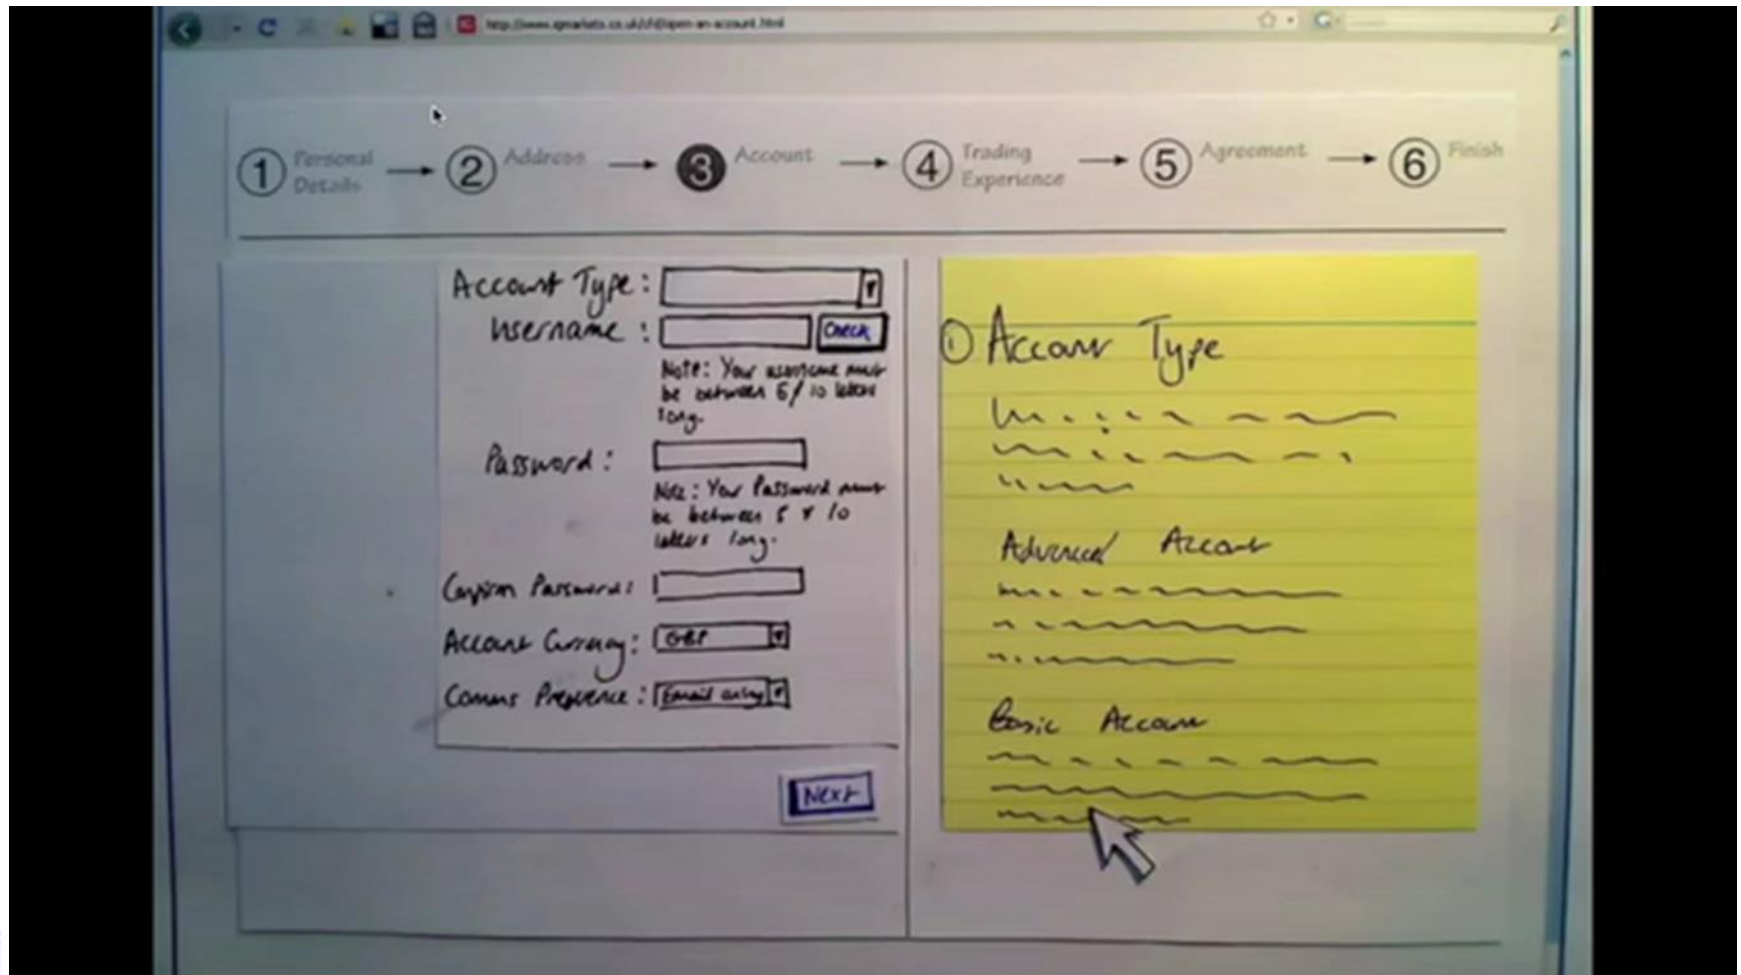 http://www.igmarkets.co.uk/cfd/open-an-account.html
1 Personal Details
2 Address
3 Account
4 Trading Experience
5 Agreement
6 Finish
Account Type:
Username: Check
Note: Your username must
be between 5/10 letters
long.
Password:
Note: Your Password must
be between 5 & 10
letters long.
Confirm Password:
Account Currency: GBP
Comms Preference: Email only
Next
i Account Type
Advanced Account
Basic Account